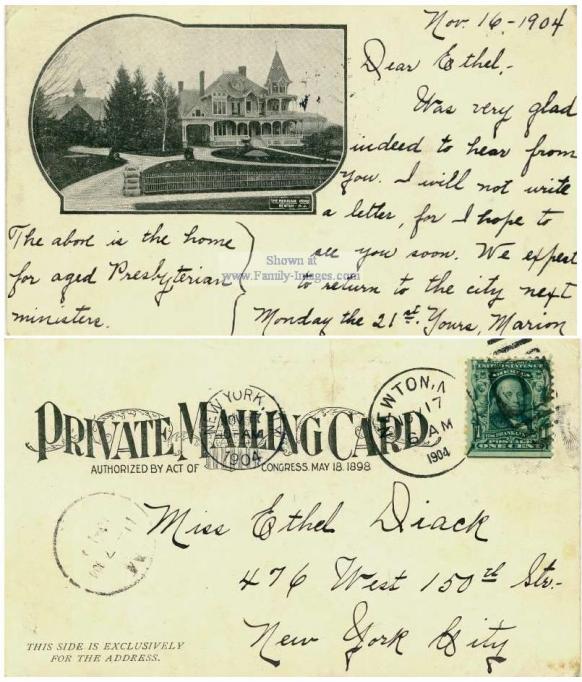 Nov. 16 - 1904
Dear Ethel,-
Was very glad
indeed to hear from
you. I will not write
a letter, for I hope to
see you soon. We expect
to return to the city next
Monday the 21st. Yours, Marion
The above is the home
for aged Presbyterian
ministers.
Shown at
www.Family-Images.com
NEWTON, N.J.
PRIVATE MAILING CARD
AUTHORIZED BY ACT OF CONGRESS, MAY 18, 1898.
NEW YORK
AM
1904
NEWTON, N
NOV 17
6 AM
1904
UNITED STATES OF
AMERICA
POSTAGE
ONE CENT
Miss Ethel Diack
476 West 150th Str.-
New York City
THIS SIDE IS EXCLUSIVELY
FOR THE ADDRESS.